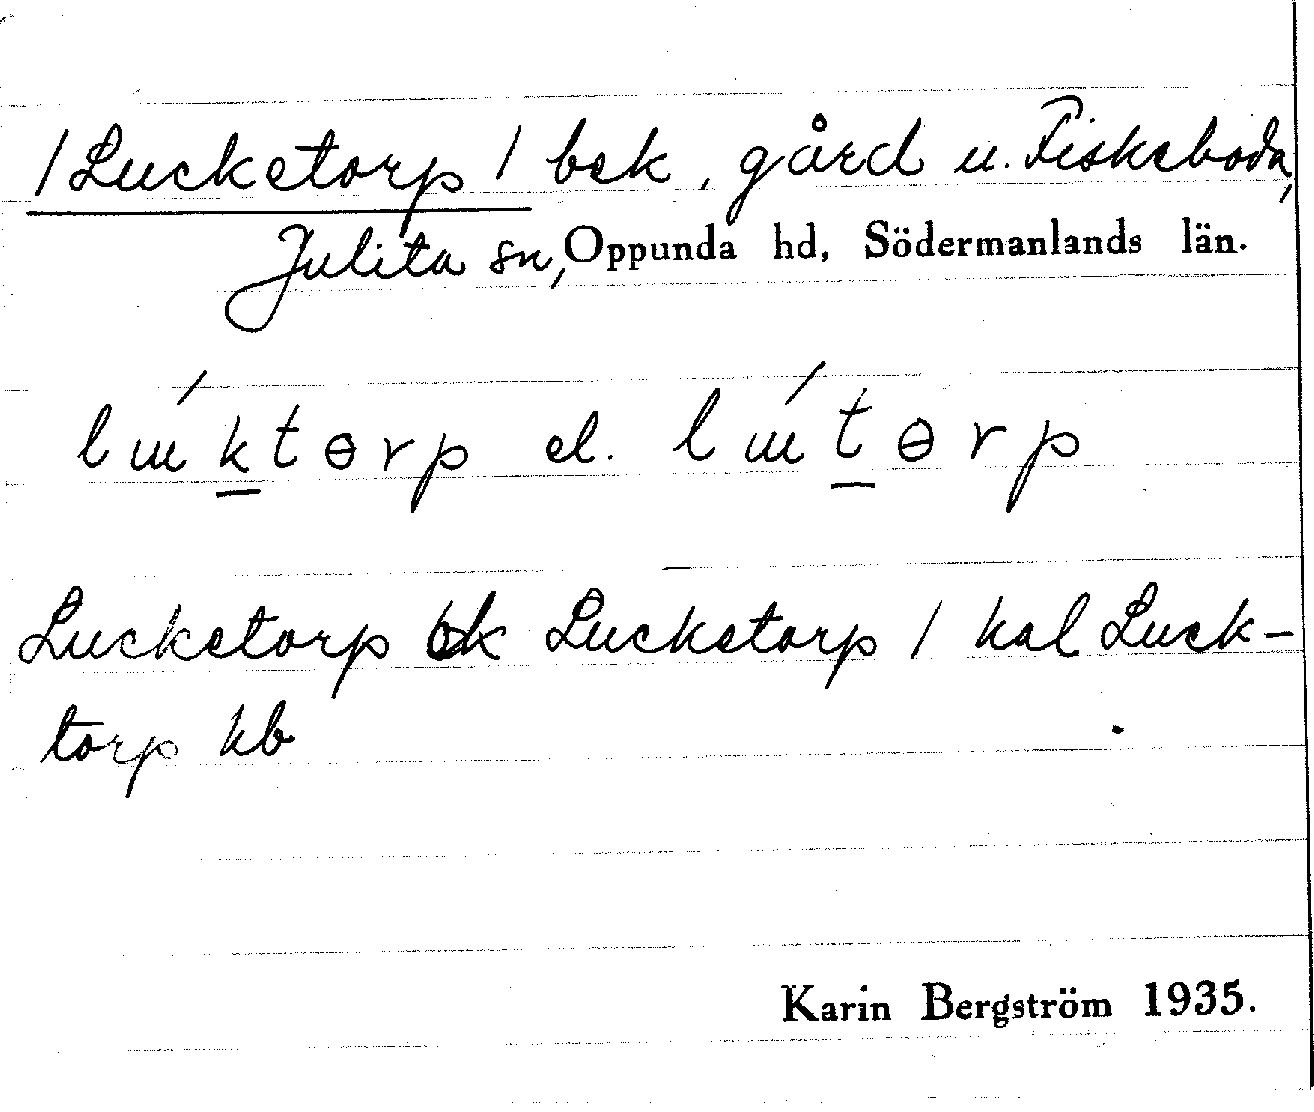 /Lucketorp/ bek, gård u. Fiskeboda,
Julita sn, Oppunda hd, Södermanlands län.
lɯ́ktɵrp el. lɯ́tɵrp
Lucketorp ek Lucketorp / kal Luck-
torp kb
Karin Bergström 1935.